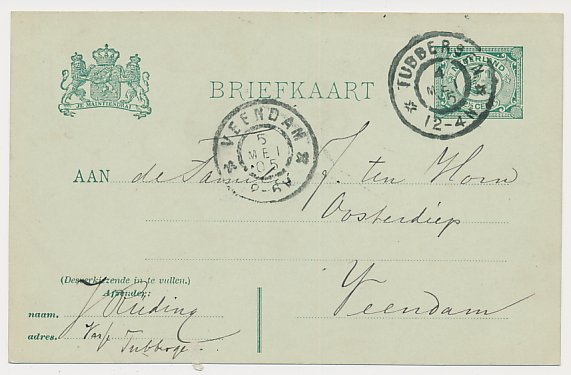 JE MAINTIENDRAI
BRIEFKAART
NEDERLAND
CENT
TUBBERG
4
MEI
05
12-4N
VEENDAM
5
MEI
05
AAN de J. ten Horn
Oosterdiep
Veendam
(Desverkiezende in te vullen.)
Afzender:
naam. J Rieding
adres. Tubberge